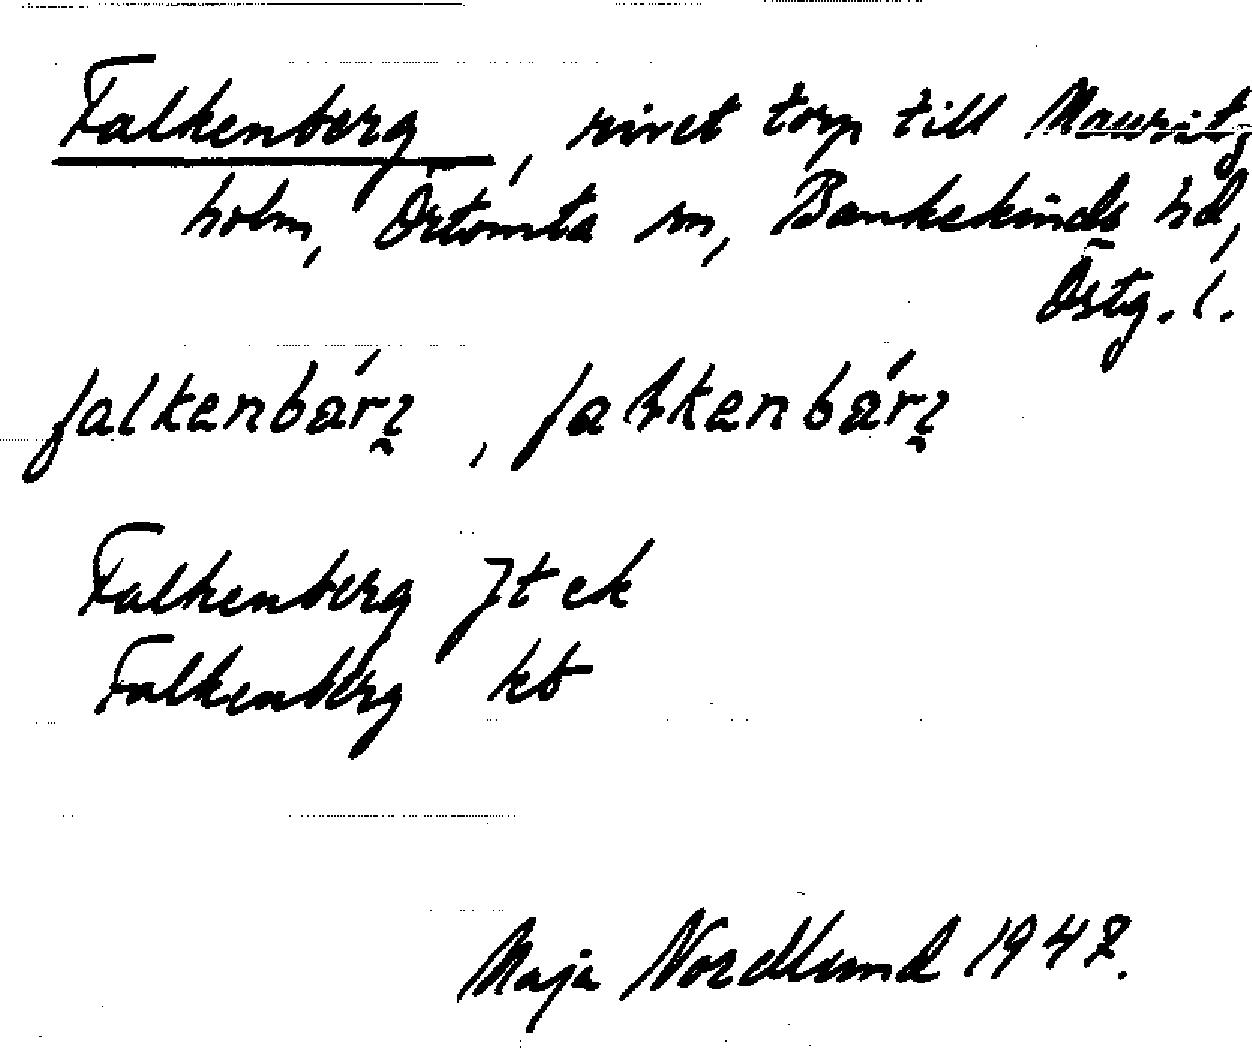 Falkenberg, rivet torp till Mauritz
holm, Örtomta sn, Bankekinds hd,
Östg. l.
falkenbárʒ, faɫkenbárʒ
Falkenberg Jt ek
Falkenberg kb
Maja Nordlund 1947.